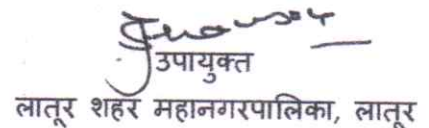 उपायुक्त
लातूर शहर महानगरपालिका, लातूर